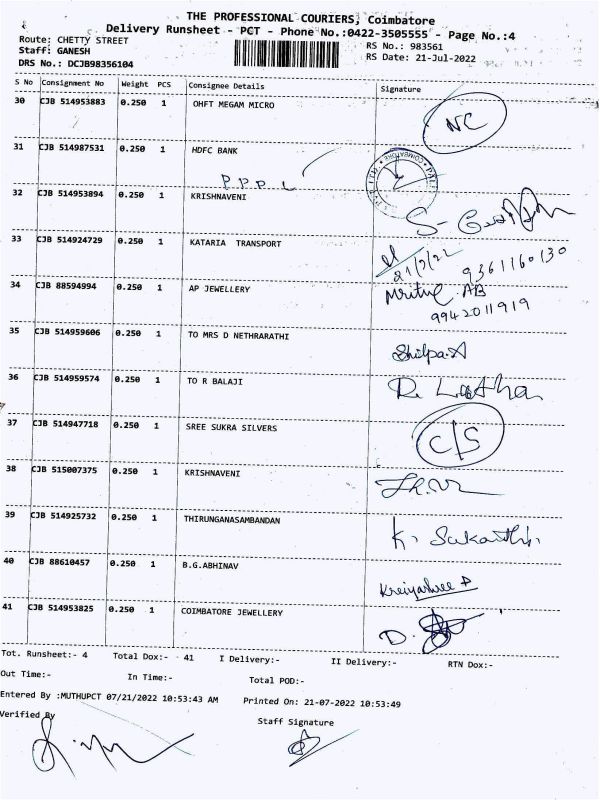 THE PROFESSIONAL COURIERS, Coimbatore
Delivery Runsheet - PCT - Phone No.:0422-3505555 - Page No.:4
Route: CHETTY STREET
RS No.: 983561
Staff: GANESH
RS Date: 21-Jul-2022
DRS No.: DCJB98356104
S No Consignment No Weight PCS Consignee Details Signature
30 CJB 514953883 0.250 1 OHFT MEGAM MICRO NC
31 CJB 514987531 0.250 1 HDFC BANK
P.P.P.L
32 CJB 514953894 0.250 1 KRISHNAVENI
33 CJB 514924729 0.250 1 KATARIA TRANSPORT
21/7/22 9361160130
34 CJB 88594994 0.250 1 AP JEWELLERY AB
9942011919
35 CJB 514959606 0.250 1 TO MRS D NETHRARATHI Shilpa.A
36 CJB 514959574 0.250 1 TO R BALAJI R. Latha
37 CJB 514947718 0.250 1 SREE SUKRA SILVERS C/S
38 CJB 515007375 0.250 1 KRISHNAVENI
39 CJB 514925732 0.250 1 THIRUNGANASAMBANDAN K. Sukanthi
40 CJB 88610457 0.250 1 B.G.ABHINAV
41 CJB 514953825 0.250 1 COIMBATORE JEWELLERY D.
Tot. Runsheet:- 4 Total Dox:- 41 I Delivery:- II Delivery:- RTN Dox:-
Out Time:- In Time:- Total POD:-
Entered By :MUTHUPCT 07/21/2022 10:53:43 AM Printed On: 21-07-2022 10:53:49
Verified By Staff Signature